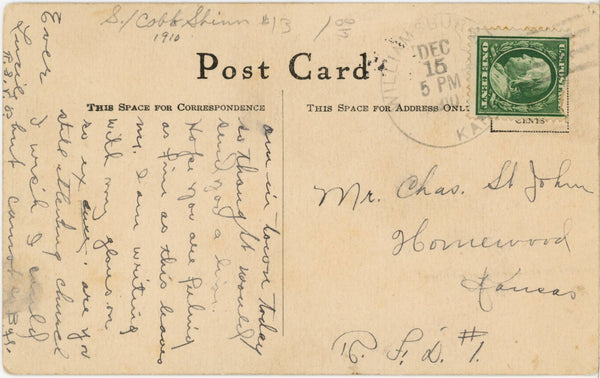 S/Cobb Shinn #13
1910
Post Card
THIS SPACE FOR CORRESPONDENCE
THIS SPACE FOR ADDRESS ONLY
WILLIAMSBURG
DEC
15
5 PM
KAN
ONE CENT
CENTS
am in town today
so thought would
send you a line.
Hope you are feeling
as fine as this leaves
me. I am writing
with my gloves on
so ex are you
still attending church
I wish I could
but cannot Bye.
Ever
Lucile
Mr. Chas. St John
Homewood
Kansas
R. F. D. #1.